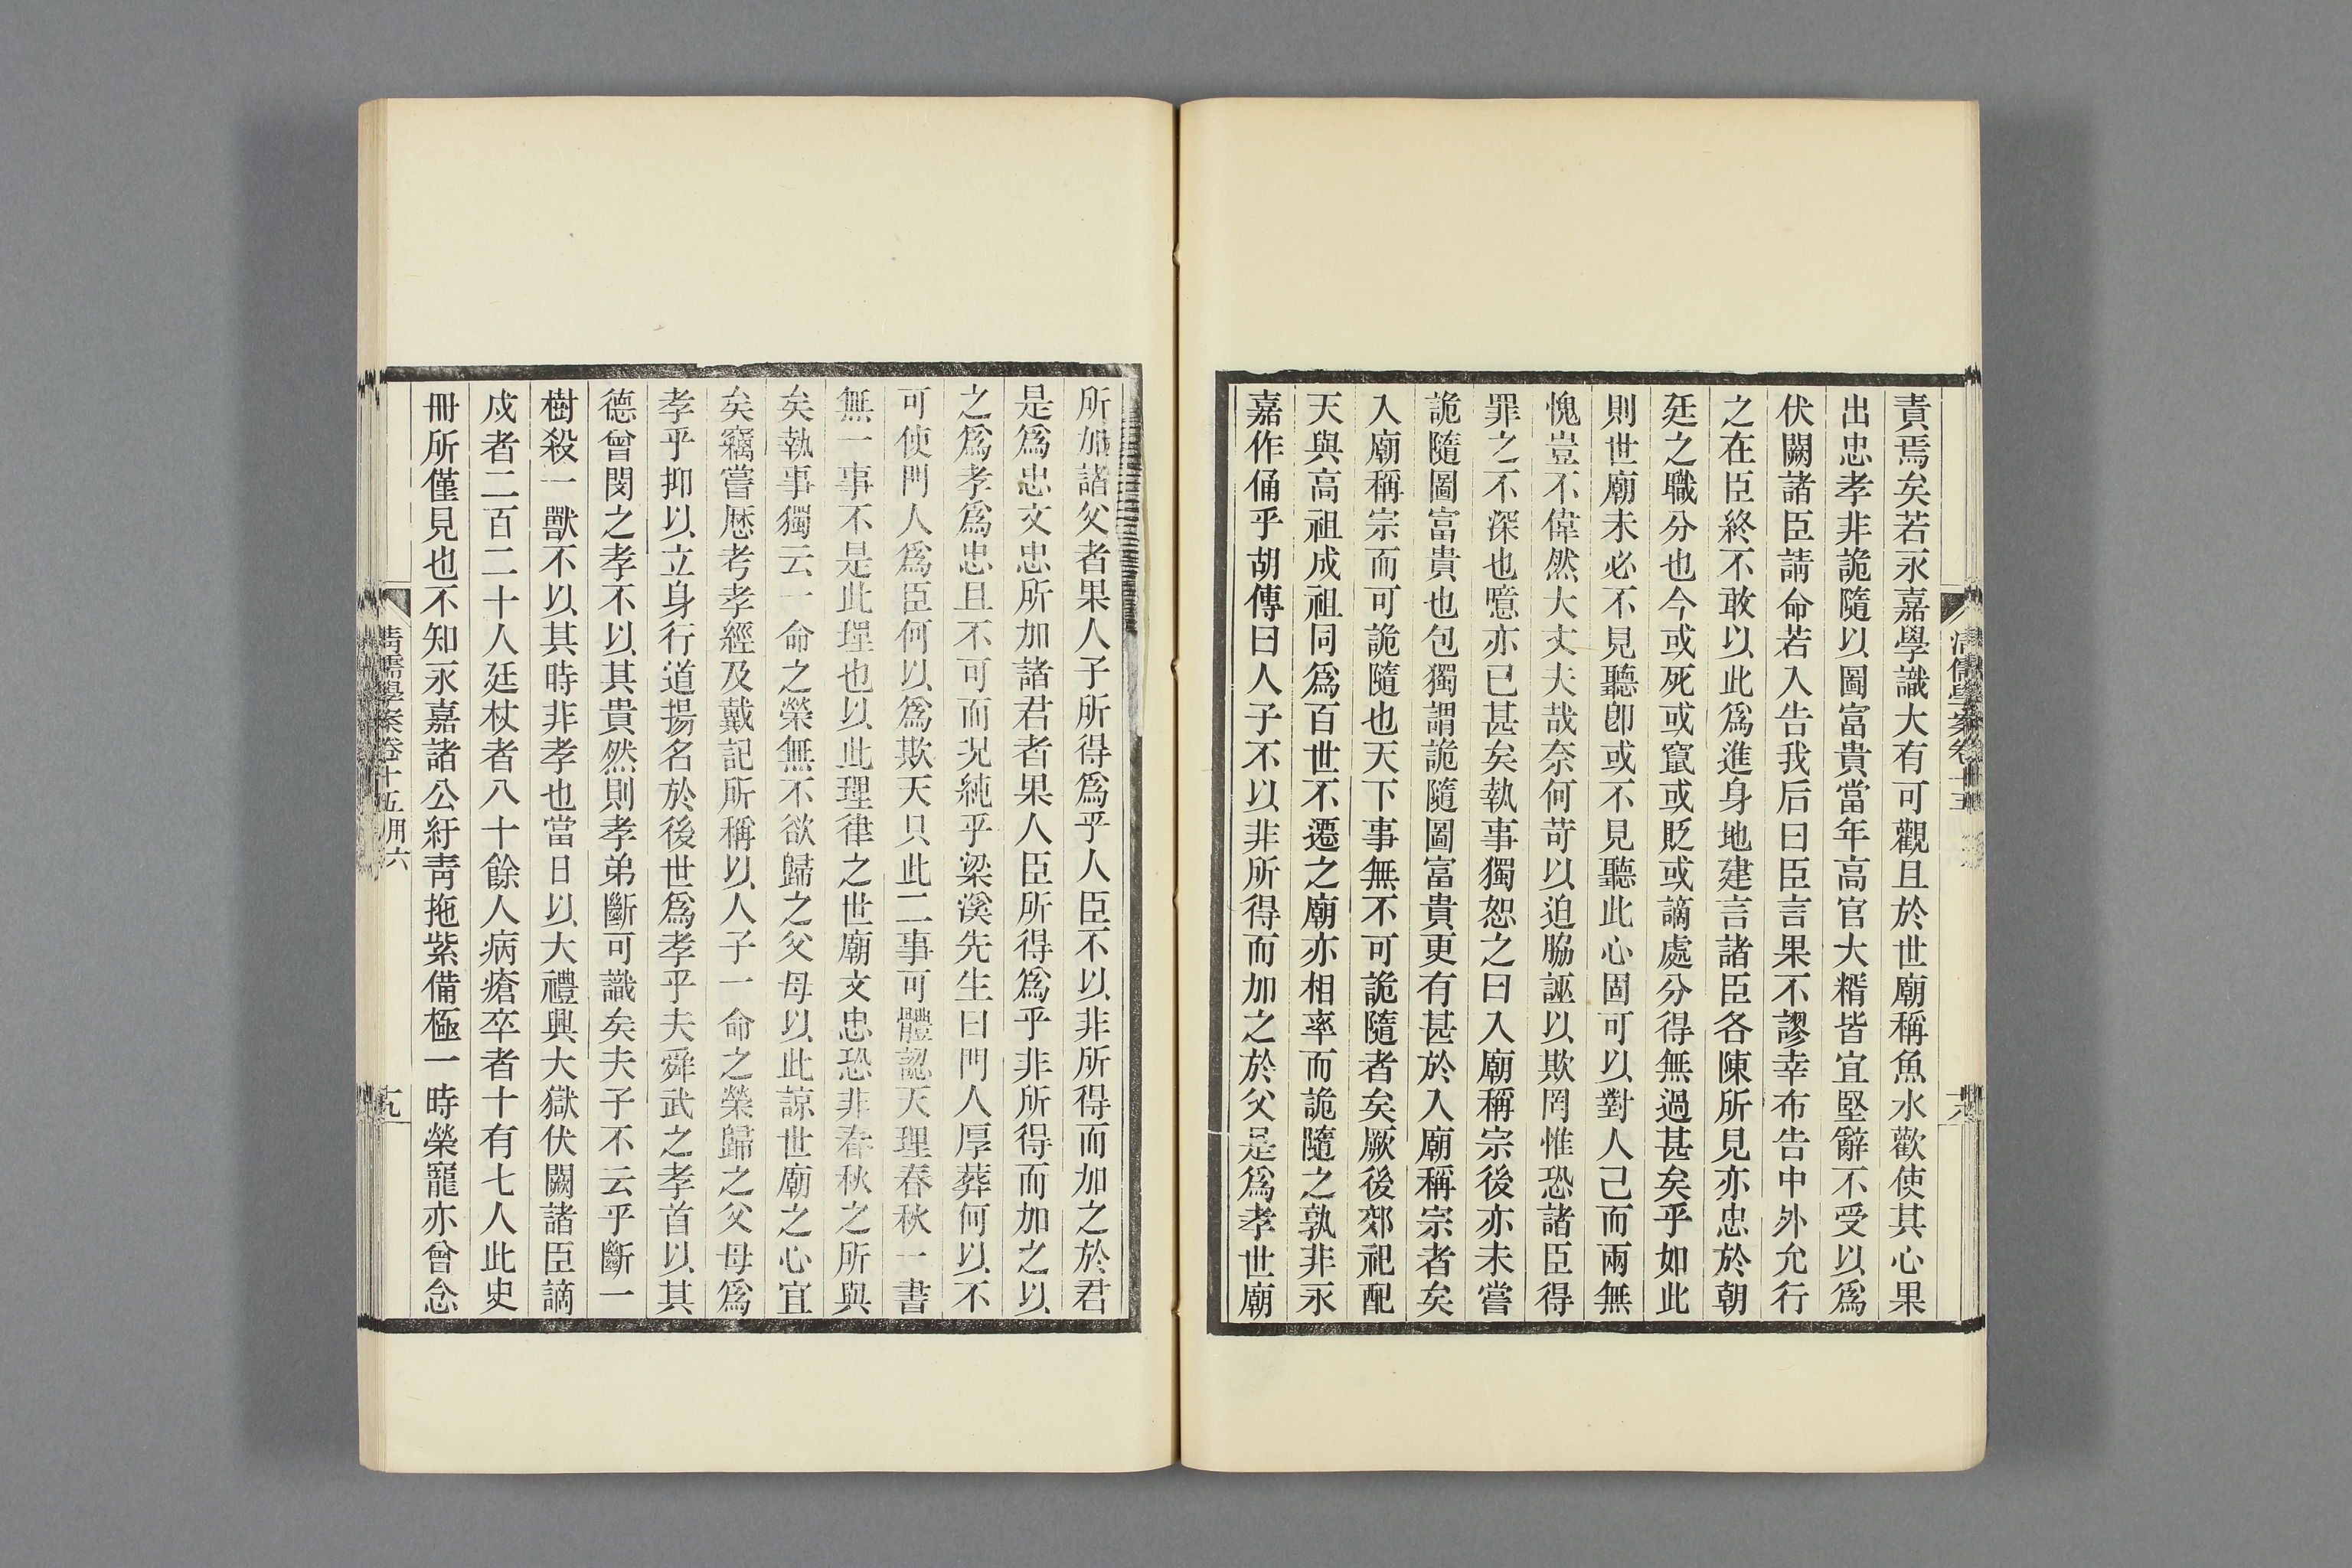 責焉矣若永嘉學識大有可觀且於世廟稱魚水歡使其心果
出忠孝非詭隨以圖富貴當年高官大糈皆宜堅辭不受以爲
伏闕諸臣請命若入告我后曰臣言果不謬幸布告中外允行
之在臣終不敢以此爲進身地建言諸臣各陳所見亦忠於朝
廷之職分也今或死或竄或貶或謫處分得無過甚矣乎如此
則世廟未必不見聽卽或不見聽此心固可以對人己而兩無
愧豈不偉然大丈夫哉奈何苛以迫脇誣以欺罔惟恐諸臣得
罪之不深也噫亦已甚矣執事獨恕之曰入廟稱宗後亦未嘗
詭隨圖富貴也包獨謂詭隨圖富貴更有甚於入廟稱宗者矣
入廟稱宗而可詭隨也天下事無不可詭隨者矣厥後郊祀配
天與高祖成祖同爲百世不遷之廟亦相率而詭隨之孰非永
嘉作俑乎胡傳曰人子不以非所得而加之於父是爲孝世廟
所加諸父者果人子所得爲乎人臣不以非所得而加之於君
是爲忠文忠所加諸君者果人臣所得爲乎非所得而加之以
之爲孝爲忠且不可而况純乎梁溪先生曰門人厚葬何以不
可使門人爲臣何以爲欺天只此二事可體認天理春秋一書
無一事不是此理也以此理律之世廟文忠恐非春秋之所與
矣執事獨云一命之榮無不欲歸之父母以此諒世廟之心宜
矣竊嘗歷考孝經及戴記所稱以人子一命之榮歸之父母爲
孝乎抑以立身行道揚名於後世爲孝乎夫舜武之孝首以其
德曾閔之孝不以其貴然則孝弟斷可識矣夫子不云乎斷一
樹殺一獸不以其時非孝也當日以大禮興大獄伏闕諸臣謫
戍者二百二十人廷杖者八十餘人病瘡卒者十有七人此史
冊所僅見也不知永嘉諸公紆靑拖紫備極一時榮寵亦曾念
清儒學案卷十五 用六